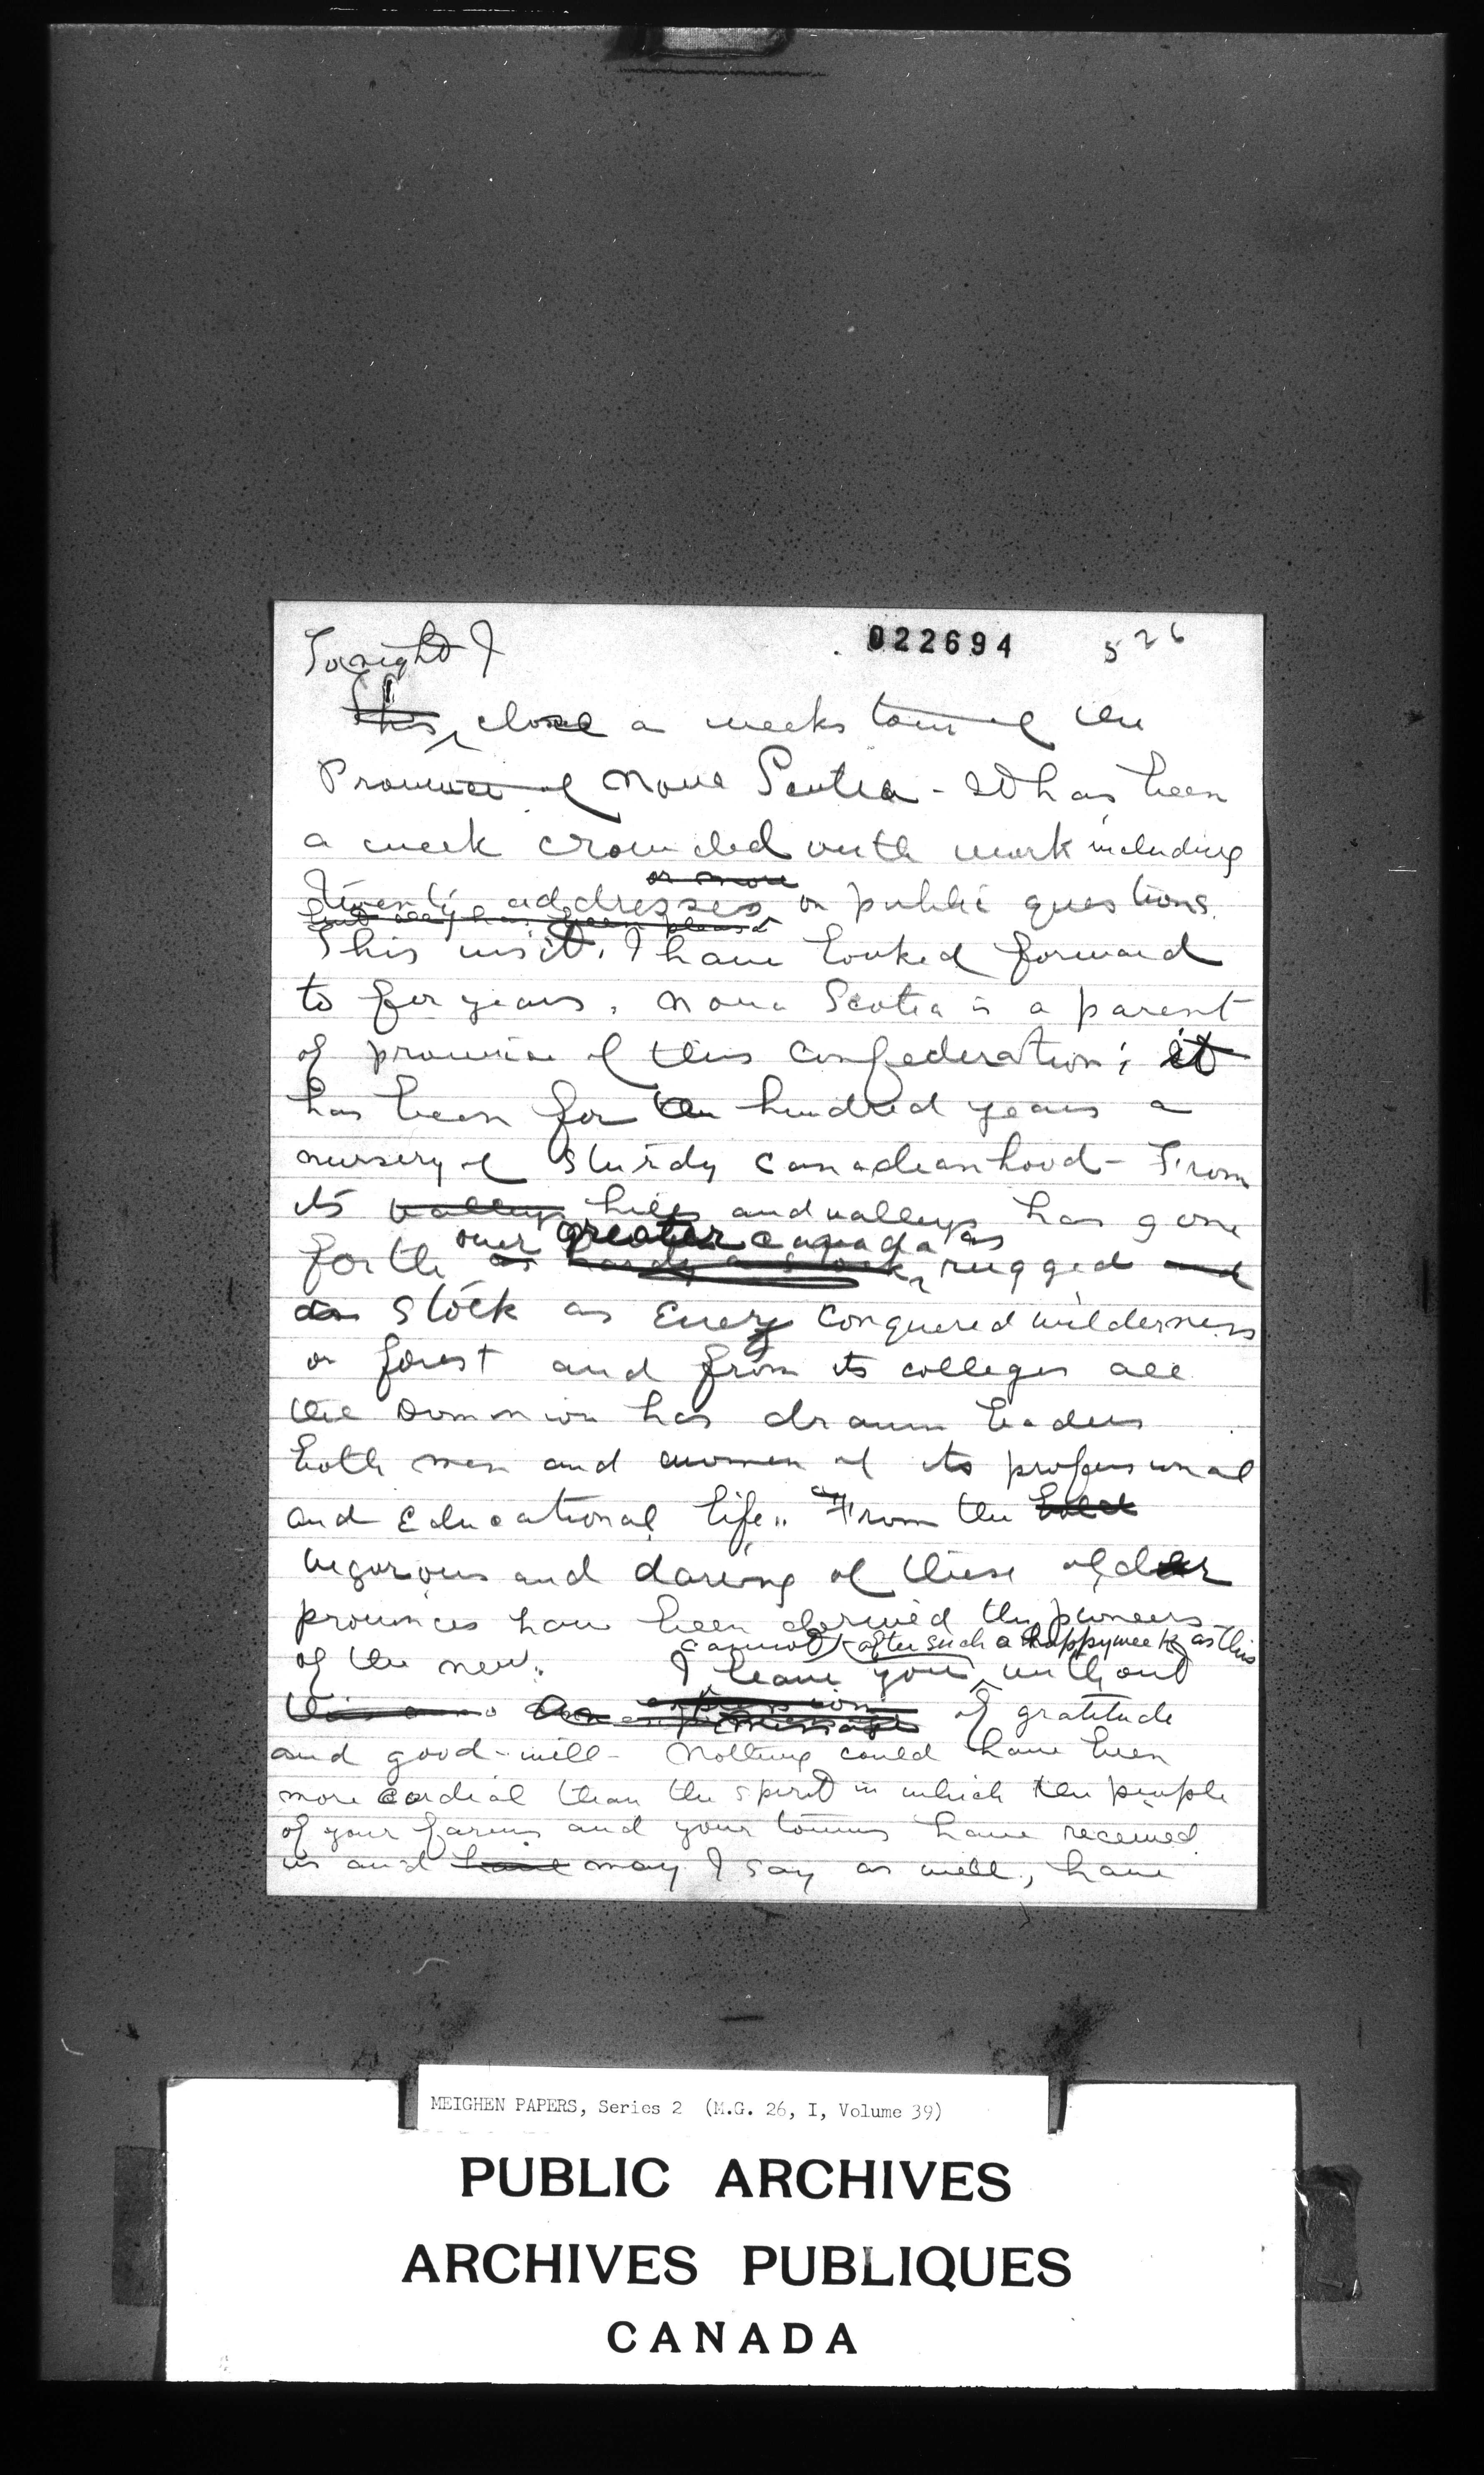 022694 526
Tonight I
This close a weeks tour of the
Province of Nova Scotia - It has been
a week crowded with work including
or more
twenty addresses on public questions.
but all has been pleasa
This visit, I have looked forward
to for years. Nova Scotia is a parent
of province of this Confederation; it
has been for a hundred years a
nursery of sturdy Canadianhood - From
its valleys hills and valleys has gone
over greater Canada as
forth as hardy a stock, rugged and
as stock as ever conquered wilderness
or forest and from its colleges all
the Dominion has drawn leaders
both men and women of its professional
and educational life. From the bold
vigorous and daring of these older
provinces have been derived the pioneers
cannot after such a happy week as this
of the new. I leave you without
an expression message of gratitude
and good-will - Nothing could have been
more cordial than the spirit in which the people
of your farms and your towns have received
us and have may I say as well, have
MEIGHEN PAPERS, Series 2 (M.G. 26, I, Volume 39)
PUBLIC ARCHIVES
ARCHIVES PUBLIQUES
CANADA